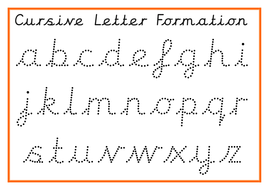 Cursive Letter Formation
abcdefghi
jklmnopqr
stuvwxyz